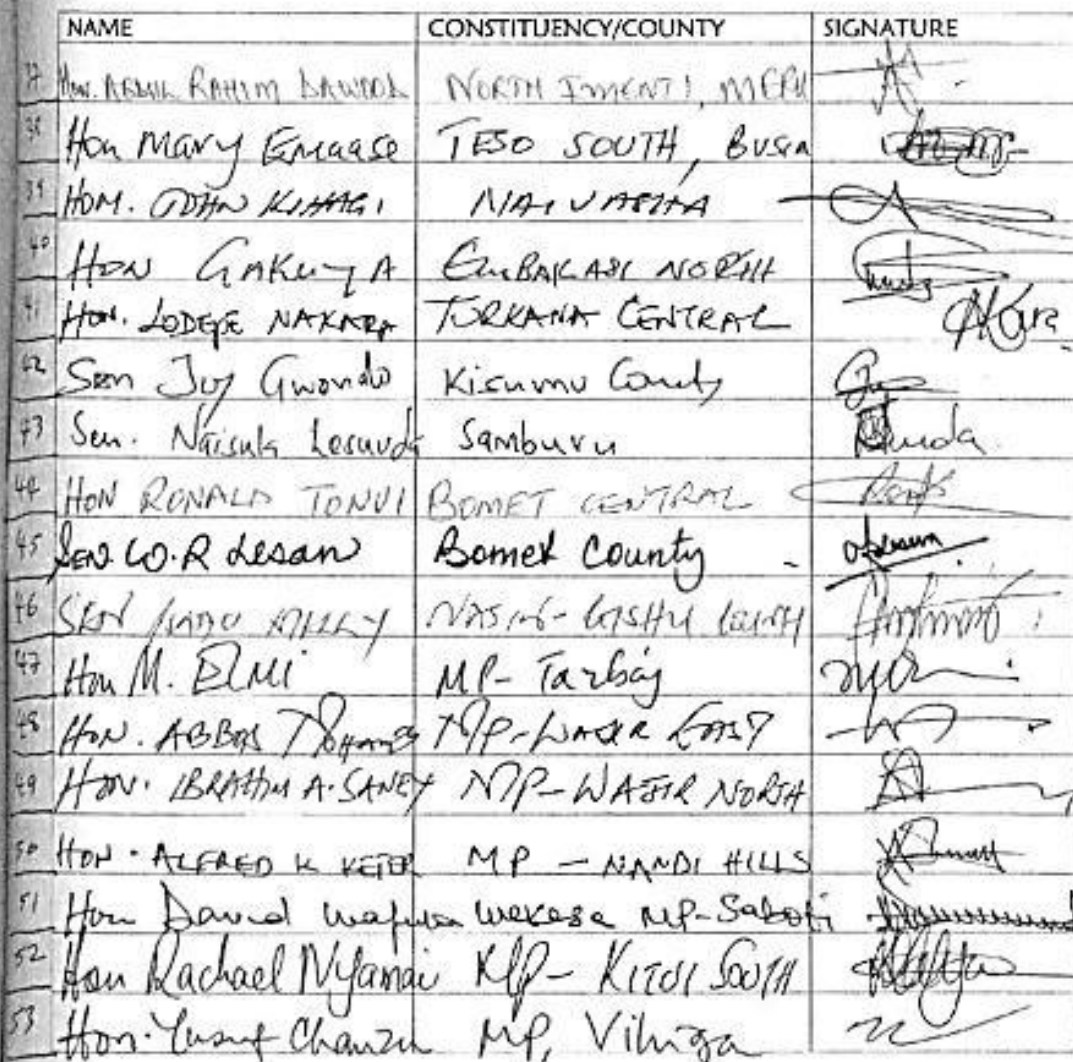 NAME CONSTITUENCY/COUNTY SIGNATURE
37 Hon. ABDUL RAHIM DAWOOD NORTH IMENTI, MERU
38 Hon Mary Emaase TESO SOUTH, BUSIA
39 HON. JOHN KIHAGI NAIVASHA
40 HON GAKUYA EMBAKASI NORTH
41 HON. LODEPE NAKARA TURKANA CENTRAL
42 Sen Joy Gwendo Kisumu County
43 Sen. Naisula Lesuuda Samburu
44 HON RONALD TONUI BOMET CENTRAL
45 SEN. W.R Lesan Bomet County
46 SEN
47 Hon M. ELMI MP- Tarbaj
48 HON. ABBAS MP-WAJIR EAST
49 HON. IBRAHIM A. SANEY MP-WAJIR NORTH
50 HON. ALFRED K KETER MP - NANDI HILLS
51 Hon David Wafula Wekesa MP-Saboti
52 Hon Rachael Nyamai MP- KITUI SOUTH
53 Hon. Yusuf Chanzu MP, Vihiga